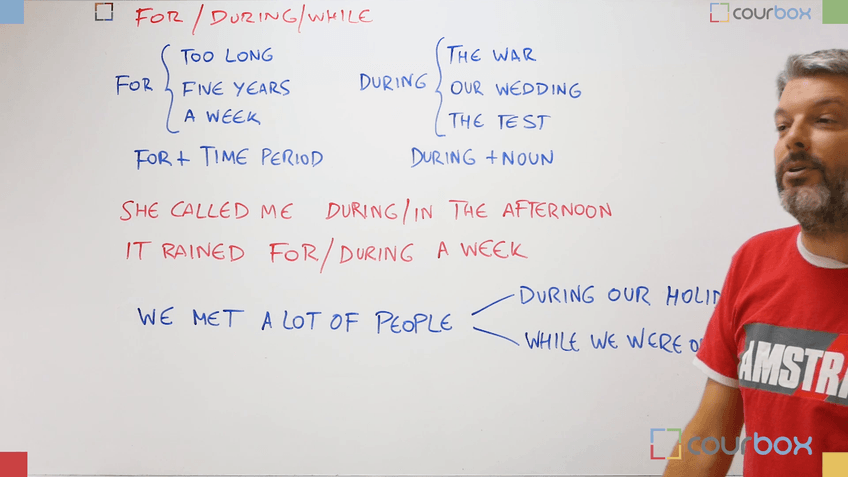 FOR / DURING / WHILE
courbox
FOR
TOO LONG
FIVE YEARS
A WEEK
DURING
THE WAR
OUR WEDDING
THE TEST
FOR + TIME PERIOD
DURING + NOUN
SHE CALLED ME DURING/IN THE AFTERNOON
IT RAINED FOR/DURING A WEEK
WE MET A LOT OF PEOPLE
DURING OUR
WHILE WE WERE
AMSTRA
courbox